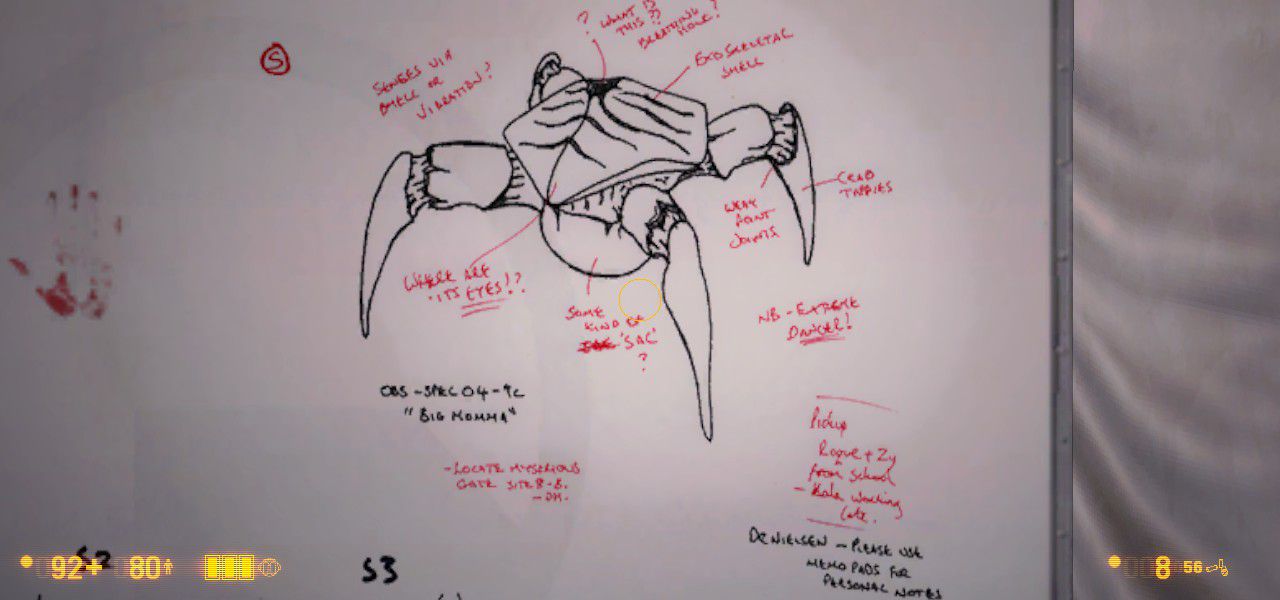 ?
WHAT IS
THIS??
BREATHING
HOLE?
S
SENSES VIA
SMELL OR
VIBRATION?
EXOSKELETAL
SHELL
CRAB
WEAK
POINT
JOINTS
WHERE ARE
ITS EYES!?
SOME
KIND OF
'SAC'
?
NB - EXTREME
DANGER!
OBS-SPEC 04-
"BIG MOMMA"
-LOCATE MYSTERIOUS
GATE SITE B-B.
-DM.
Pickup
Rogue + Zy
from School
- Kala working
late.
DR NIELSEN - PLEASE USE
MEMO PADS FOR
PERSONAL NOTES
S2
S3
92
80
8
56